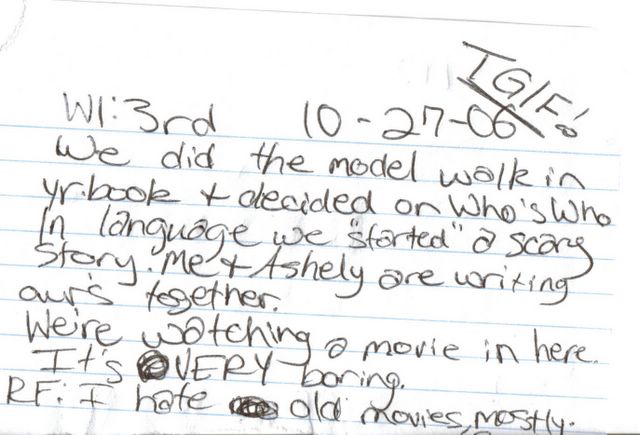 TGIF!
W1: 3rd 10-27-06
We did the model walk in
yrbook + decided on Who's Who
In language we "started" a scary
Story. Me + Ashely are writing
our's together.
We're watching a movie in here.
It's VERY boring.
RF: I hate old movies, mostly.